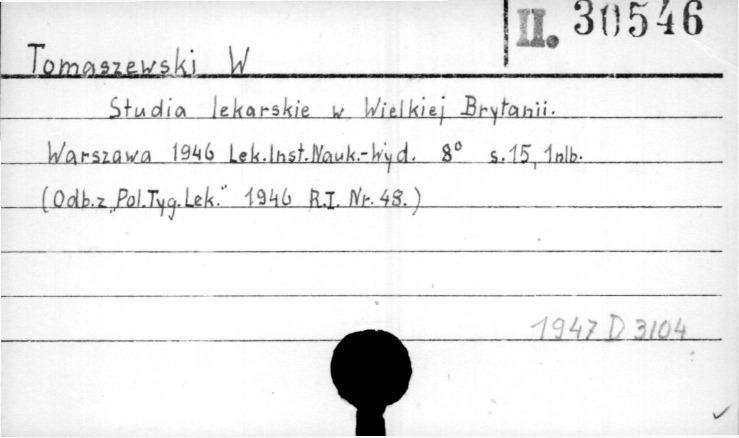 II. 30546
Tomaszewski W
Studia lekarskie w Wielkiej Brytanii.
Warszawa 1946 Lek.Inst.Nauk.-Wyd. 8° s.15, 1nlb.
(Odb.z „Pol.Tyg.Lek." 1946 R.I. Nr. 48.)
1947 D 3104